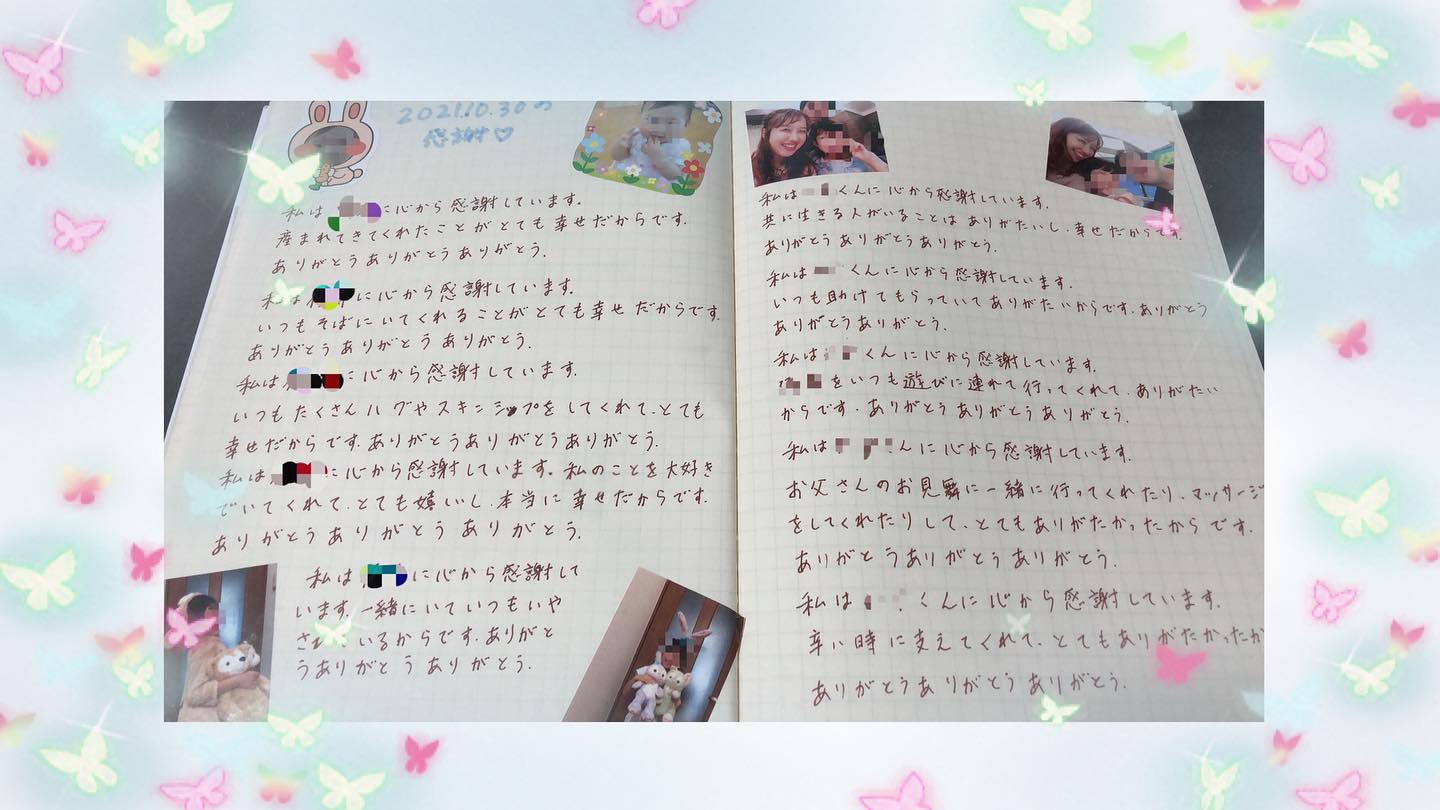 2021.10.30の
感謝♡
私は に心から感謝しています。
産まれてきてくれたことがとても幸せだからです。
ありがとうありがとうありがとう。
私は に心から感謝しています。
いつもそばにいてくれることがとても幸せだからです。
ありがとうありがとうありがとう。
私は に心から感謝しています。
いつもたくさんハグやスキンシップをしてくれて、とても
幸せだからです。ありがとうありがとうありがとう。
私は に心から感謝しています。私のことを大好き
でいてくれて、とても嬉しいし、本当に幸せだからです。
ありがとうありがとうありがとう。
私は に心から感謝して
います。一緒にいていつもいや
されているからです。ありがと
うありがとうありがとう。
私は くんに心から感謝しています。
共に生きる人がいることはありがたいし、幸せだからです。
ありがとうありがとうありがとう。
私は くんに心から感謝しています。
いつも助けてもらっていてありがたいからです。ありがとう
ありがとうありがとう。
私は くんに心から感謝しています。
をいつも遊びに連れて行ってくれて、ありがたい
からです。ありがとうありがとうありがとう。
私は んに心から感謝しています。
お父さんのお見舞に一緒に行ってくれたり、マッサージ
をしてくれたりして、とてもありがたかったからです。
ありがとうありがとうありがとう。
私は くんに心から感謝しています。
辛い時に支えてくれて、とてもありがたかったか
ありがとうありがとうありがとう。